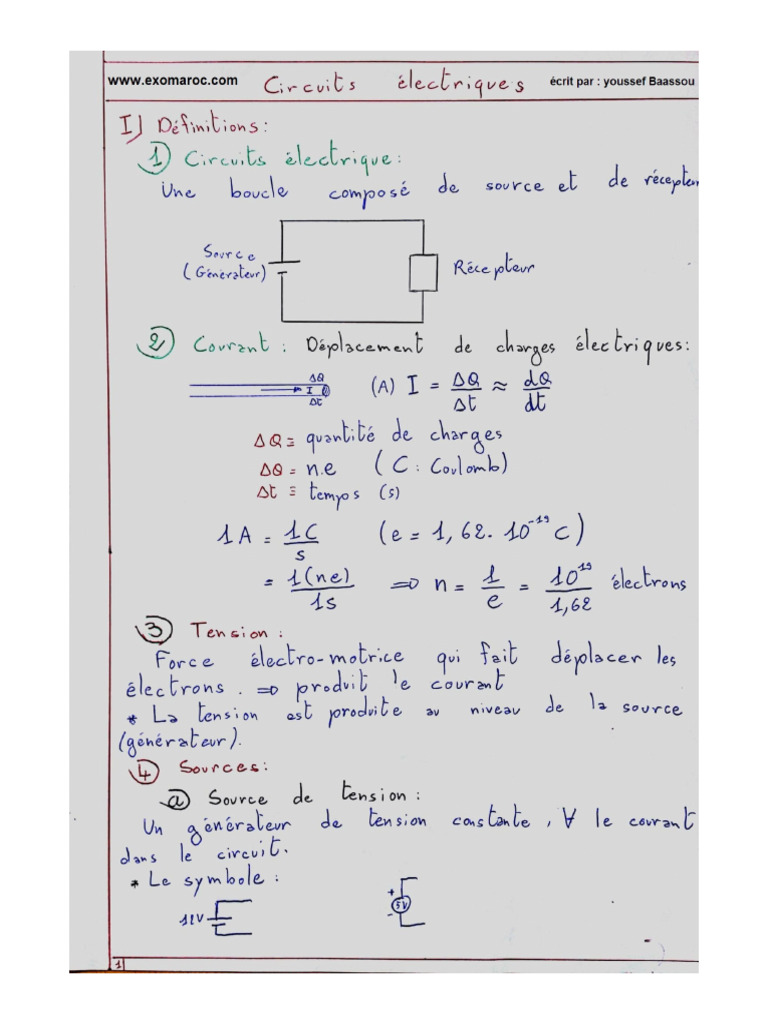 www.exomaroc.com Circuits électriques écrit par : youssef Baassou
I) Définitions:
1) Circuits électrique:
Une boucle composé de source et de récepteu
Source
(Générateur)
Récepteur
2) Courant : Déplacement de charges électriques:
ΔQ
I
Δt
(A) I = ΔQ/Δt ≈ dQ/dt
ΔQ ≡ quantité de charges
ΔQ = n.e (C : Coulomb)
Δt ≡ temps (s)
1A = 1C/s (e = 1,62. 10^-19 C)
= 1(ne)/1s => n = 1/e = 10^19/1,62 électrons
3) Tension :
Force électro-motrice qui fait déplacer les
électrons. => produit le courant
* La tension est produite au niveau de la source
(générateur).
4) Sources:
a) Source de tension :
Un générateur de tension constante, ∀ le courant
dans le circuit.
* Le symbole :
12V
+
5V
-
1